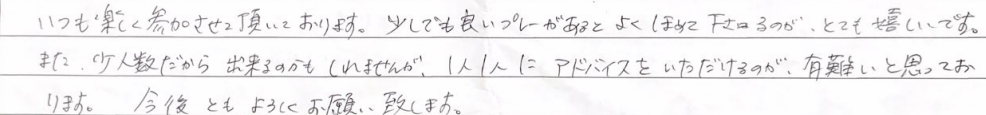 いつも楽しく参加させて頂いております。少しでも良いプレーがあると よくほめて下さるのが、とても嬉しいです。
また、少人数だから出来るのかもしれませんが、1人1人に アドバイスをいただけるのが、有難いと思ってお
ります。 今後ともよろしくお願い致します。